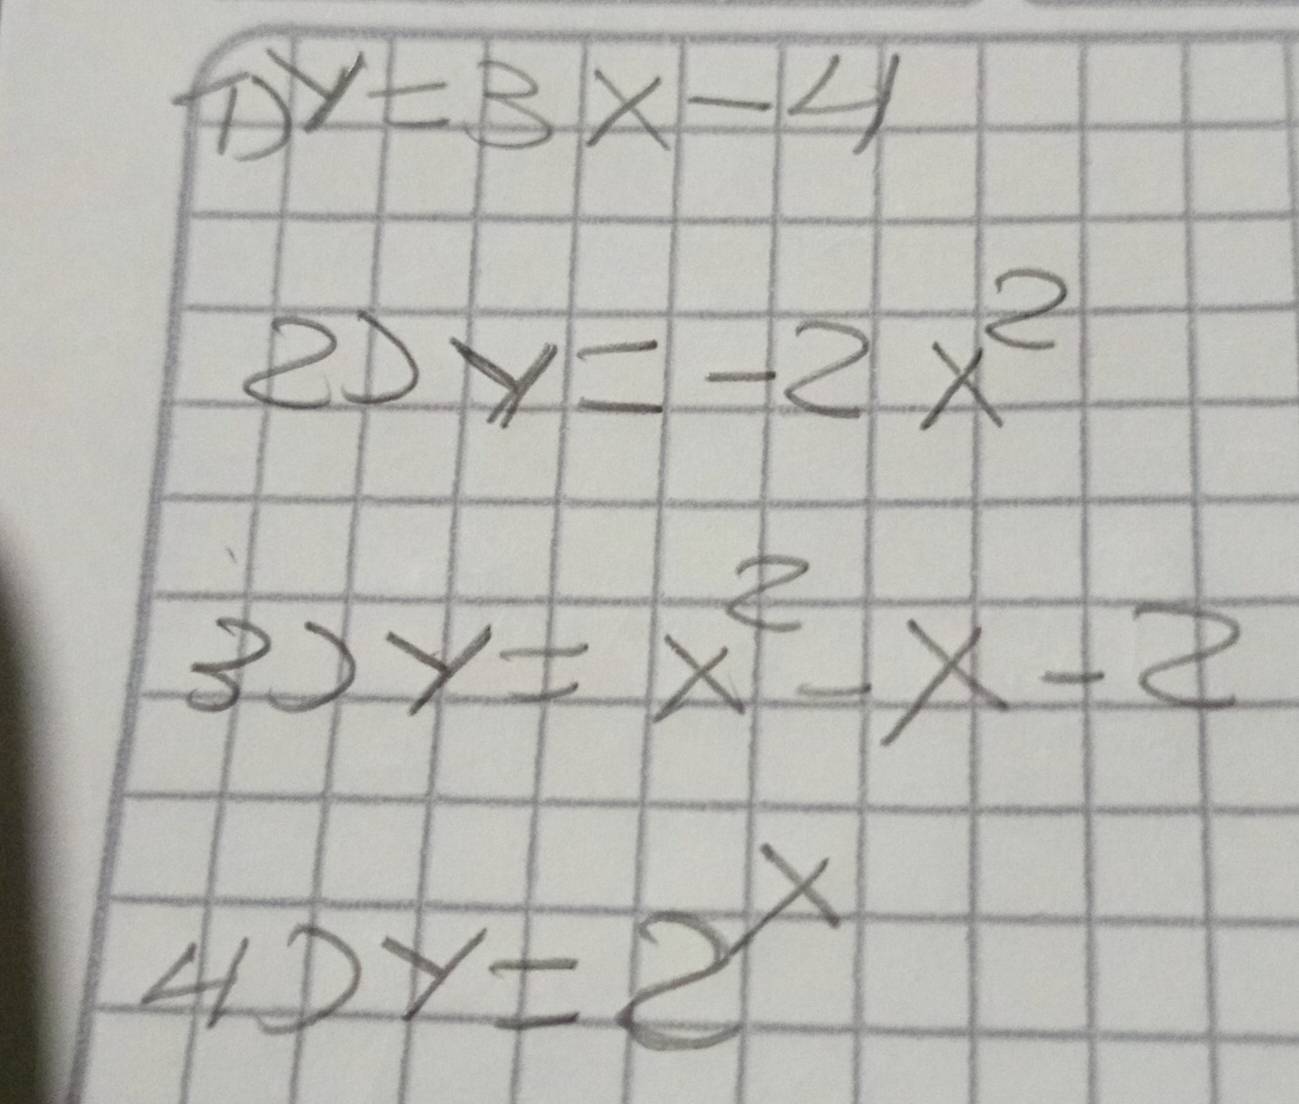 1) y = 3x - 4
2) y = -2x²
3) y = x² - x - 2
4) y = 2ˣ